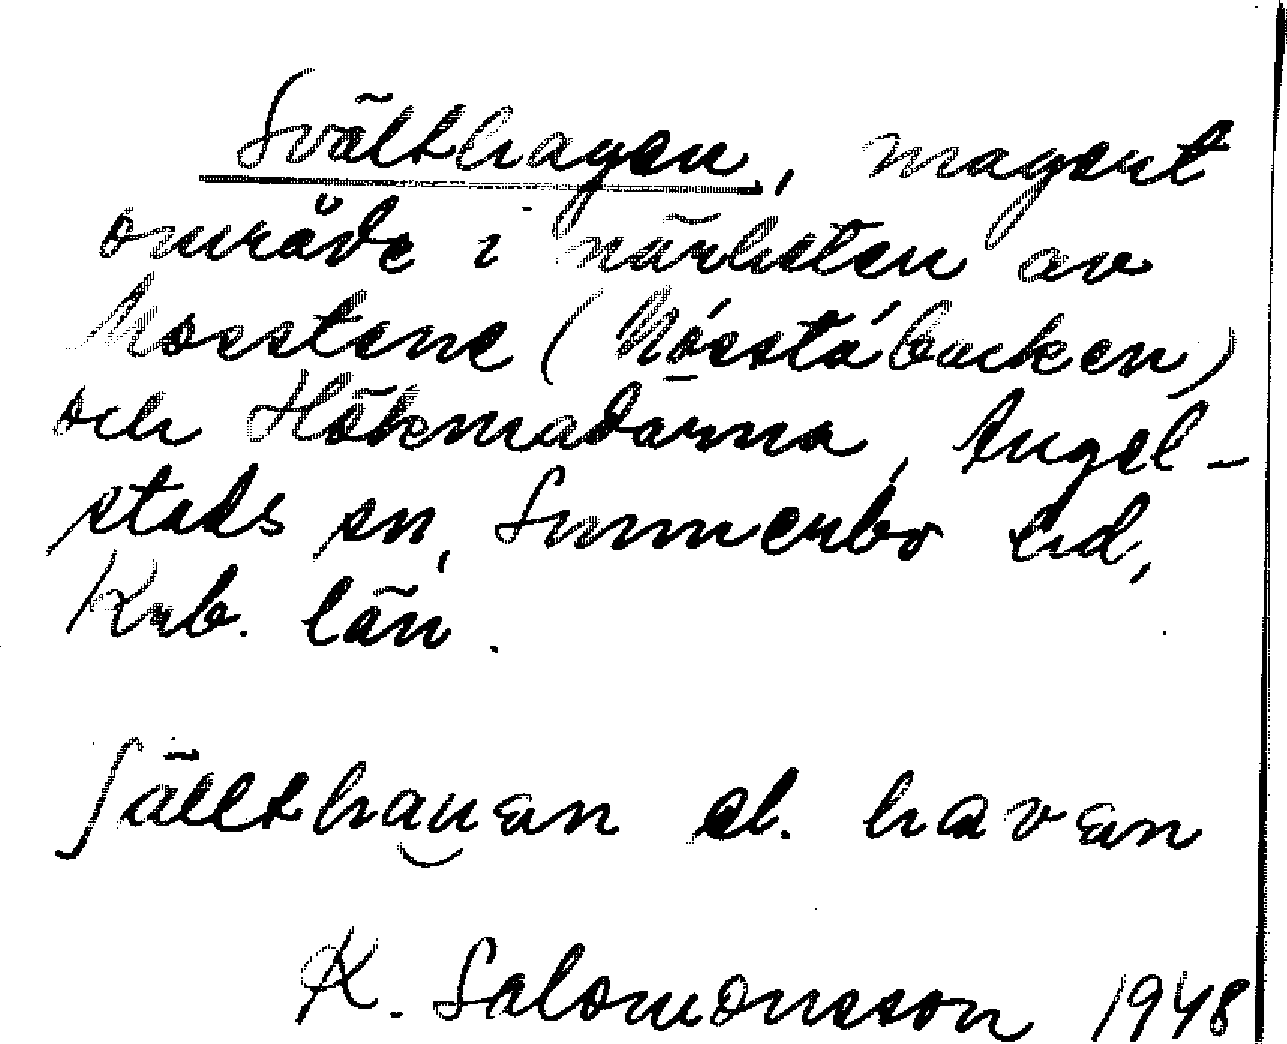 Svälthagen, magert
område i närheten av
Mosstene (Nósstábacken)
och Hökmadarna, Angel-
stads sn, Sunnerbo hd,
Krb. län.
ſälthauan el. havan
K. Salomonsson 1948